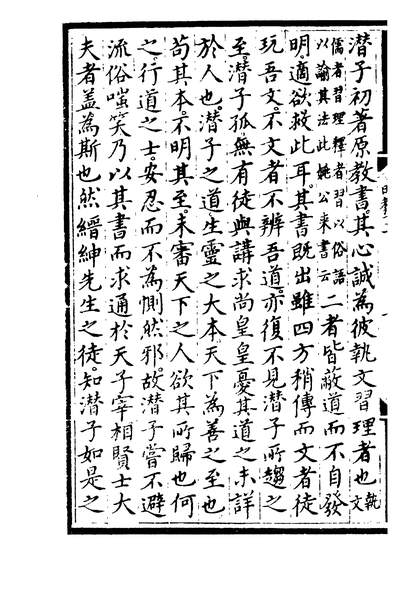 潛子初著原教書其心誠為彼執文習理者也執文
儒者習理釋者習以俗語以諭其法此姚公来書云二者皆蔽道而不自發
明適欲救此耳其書既出雖四方稍傳而文者徒
玩吾文不文者不辨吾道亦復不見潛子所趨之
至潛子孤無有徒與講求尚皇皇憂其道之未詳
於人也潛子之道生靈之大本天下為善之至也
茍其本不明其至未審天下之人欲其所歸也何
之行道之士安忍而不為惻然邪故潛子嘗不避
流俗嗤笑乃以其書而求通於天子宰相賢士大
夫者盖為斯也然縉紳先生之徒知潛子如是之